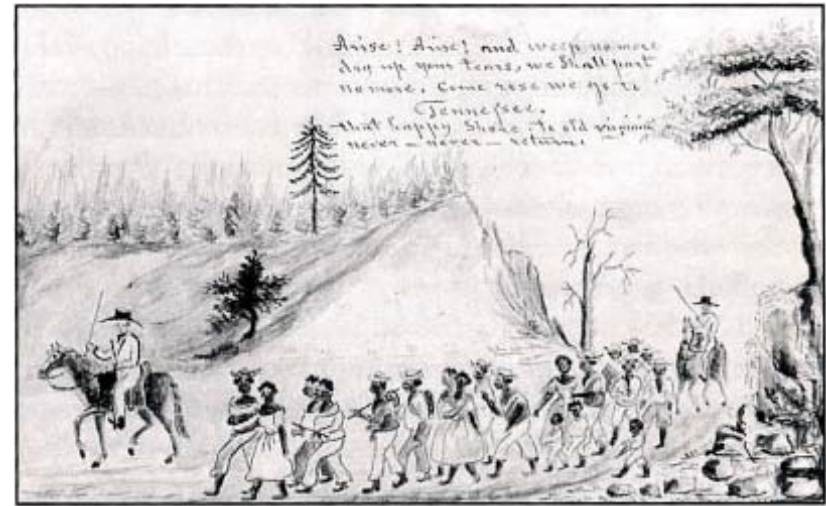 Arise! Arise! and weep no more
dry up your tears, we shall part
no more. Come rose we go to
Tennessee.
that happy shore. to old virginia
never – never – return.